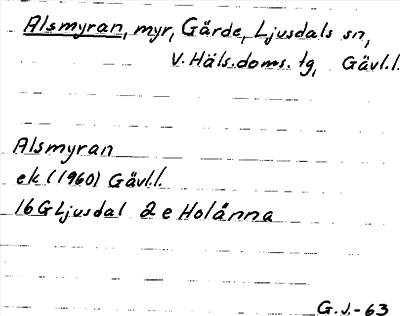 Alsmyran, myr, Gärde, Ljusdals sn,
V. Häls. doms. tg, Gävl.l.
Alsmyran
ek (1960) Gävl.l.
16G Ljusdal 2 e Holänna
G. J. - 63